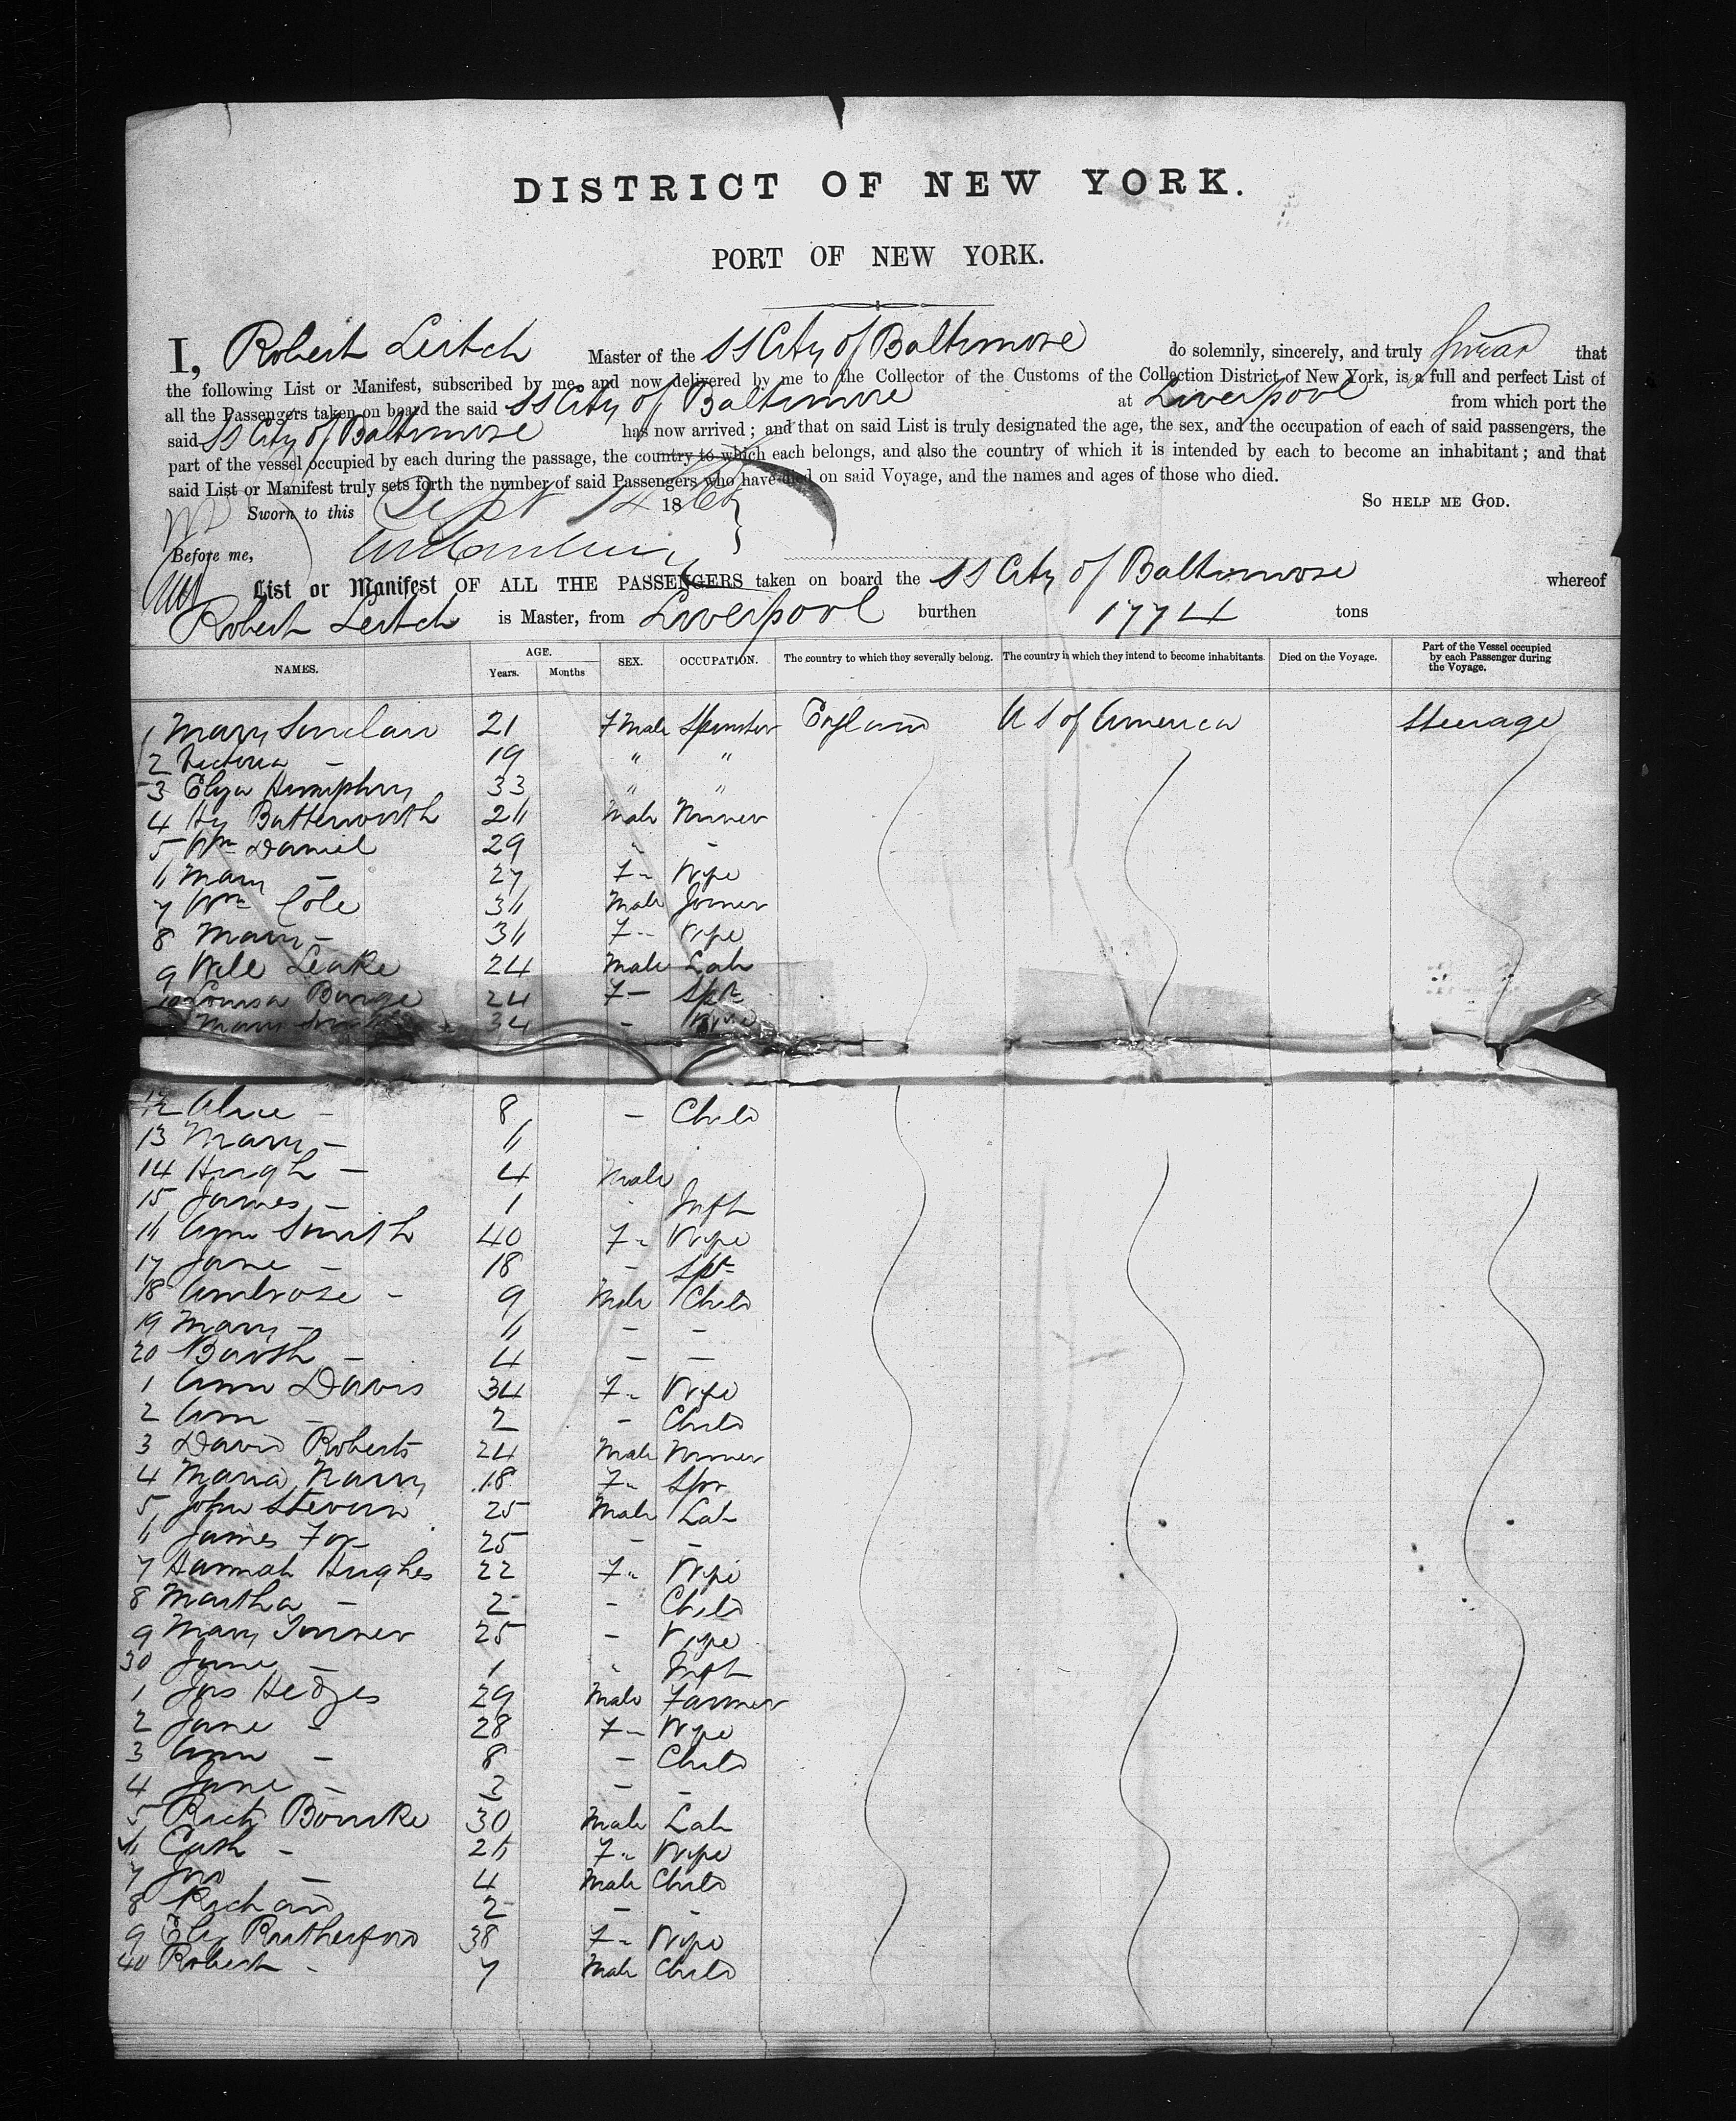 DISTRICT OF NEW YORK.
PORT OF NEW YORK.
I, Robert Leitch Master of the SS City of Baltimore do solemnly, sincerely, and truly swear that
the following List or Manifest, subscribed by me, and now delivered by me to the Collector of the Customs of the Collection District of New York, is a full and perfect List of
all the Passengers taken on board the said SS City of Baltimore at Liverpool from which port the
said SS City of Baltimore has now arrived; and that on said List is truly designated the age, the sex, and the occupation of each of said passengers, the
part of the vessel occupied by each during the passage, the country to which each belongs, and also the country of which it is intended by each to become an inhabitant; and that
said List or Manifest truly sets forth the number of said Passengers who have died on said Voyage, and the names and ages of those who died.
Sworn to this Sept 14 1866 So help me God.
Before me,
List or Manifest OF ALL THE PASSENGERS taken on board the SS City of Baltimore whereof
Robert Leitch is Master, from Liverpool burthen 1774 tons
NAMES. AGE. Years. Months SEX. OCCUPATION. The country to which they severally belong. The country in which they intend to become inhabitants. Died on the Voyage. Part of the Vessel occupied by each Passenger during the Voyage.
1 Mary Sinclair 21 FMale Spinster England U S of America Steerage
2 Victoria - 19 " "
3 Eliza Humphry 33 " "
4 Hy Butterworth 26 Male Miner
5 Wm Daniel 29 - -
6 Mary - 27 F- Wife
7 Wm Cole 36 Male Joiner
8 Mary - 36 F- Wife
9 Will Leake 24 Male Lab
10 Louisa Binge 24 F- Spr
Mary 34 - Wife
12 Alice - 8 - Child
13 Mary - 6
14 Hugh - 4 Male
15 James - 1 Inft
16 Ann Smith 40 F- Wife
17 Jane - 18 - Spr
18 Ambrose - 9 Male Child
19 Mary - 6 - -
20 Barth - 4 - -
1 Ann Davis 34 F- Wife
2 Ann - 2 - Child
3 David Roberts 24 Male Miner
4 Maria 18 F- Spr
5 John Steven 25 Male Lab
6 James Fox 25 - -
7 Hannah Hughes 22 F- Wife
8 Martha - 2 - Child
9 Mary Turner 25 - Wife
30 Jane - 1 " Inft
1 Jas Hedges 29 Male Farmer
2 Jane - 28 F- Wife
3 Ann - 8 - Child
4 Jane - 2 - -
5 Rich Bourke 30 Male Lab
6 Cath - 26 F- Wife
7 Jno - 4 Male Child
8 Richard 2 - -
9 Eliz Rutherford 38 F- Wife
40 Robert - 7 Male Child